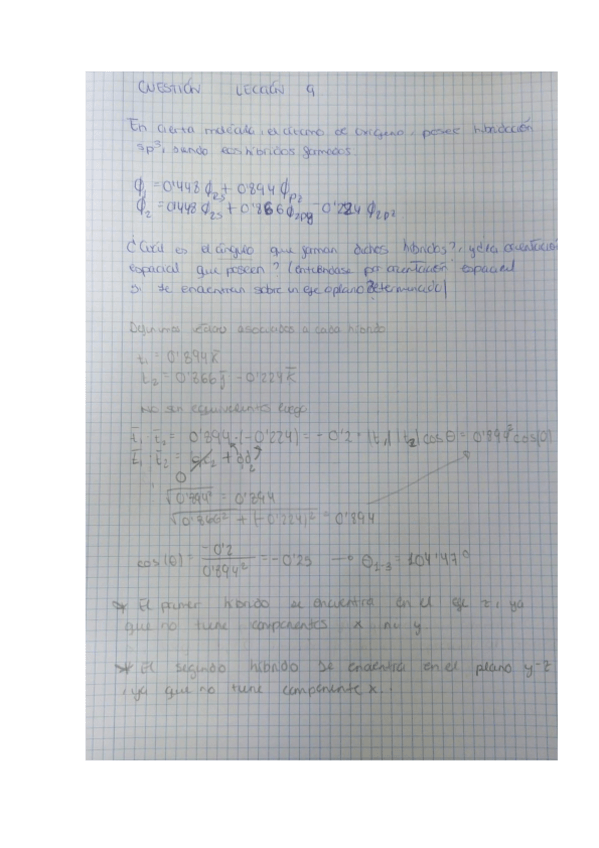 CUESTIÓN LECCIÓN 9
En cierta molécula, el átomo de oxígeno, posee hibridación
sp³, siendo dos híbridos formados
ϕ₁ = 0'448 ϕ₂ₛ + 0'894 ϕ
ϕ₂ = 0'448 ϕ₂ₛ + 0'866 ϕ₂py - 0'224 ϕ₂pz
¿Cuál es el ángulo que forman dichos híbridos?, y de la orientación
espacial que poseen? (entiéndase por orientación espacial
si se encuentran sobre un eje o plano determinado)
Definimos asociados a cada híbrido
t₁ = 0'894 k
t₂ = 0'866 j - 0'224 k
No son equivalentes luego
t₁ · t₂ = 0'894 · (-0'224) = -0'2 = |t₁| |t₂| cos θ = 0'894² cos(θ)
t₁ · t₂ =
0
√0'894² = 0'894
√0'866² + (-0'224)² = 0'894
cos(θ) = -0'2 / 0'894² = -0'25 → θ₁₋₃ = 104'47°
* El primer híbrido se encuentra en el eje z, ya
que no tiene componentes x ni y
* El segundo híbrido se encuentra en el plano y-z
, ya que no tiene componente x.